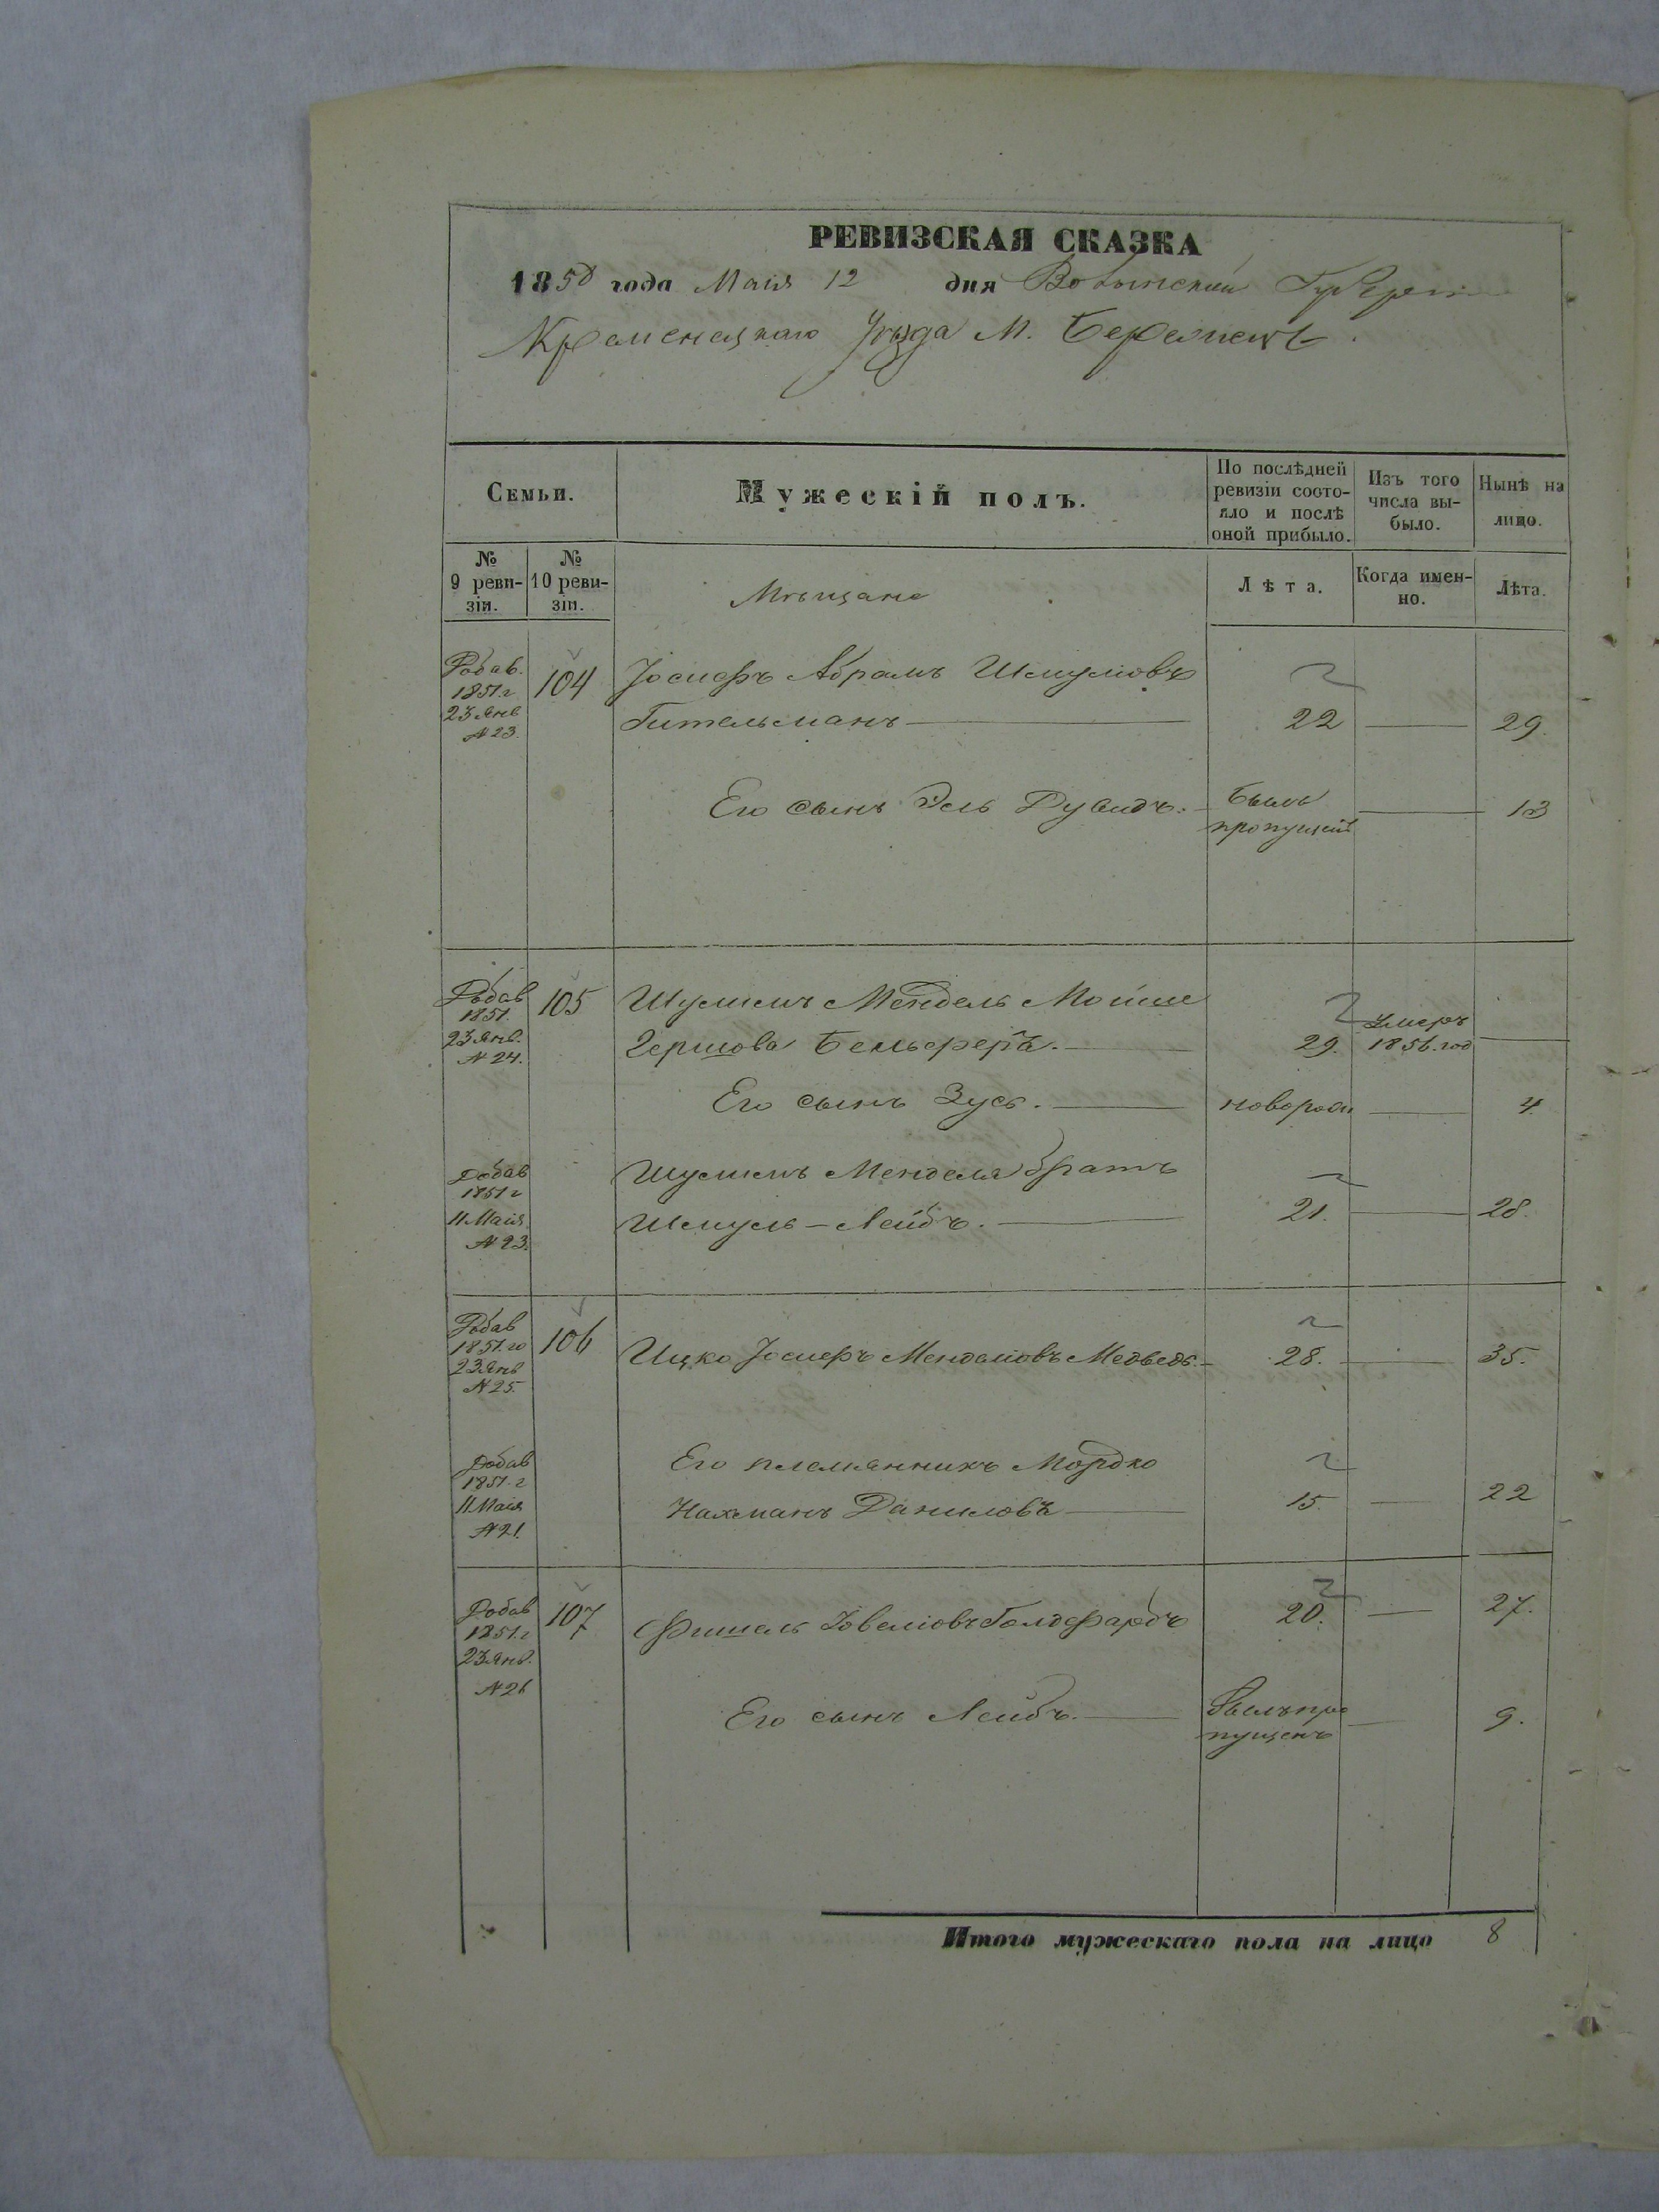 РЕВИЗСКАЯ СКАЗКА
1858 года Маія 12 дня Волынской Губерніи
Кременецкаго уѣзда М. Бережецъ.
Семьи.
Мужескій полъ.
По послѣдней ревизіи состо-
яло и послѣ
оной прибыло.
Изъ того
числа вы-
было.
Нынѣ на
лицо.
№
9 реви-
зіи.
№
10 реви-
зіи.
Мѣщане
Лѣта.
Когда имен-
но.
Лѣта.
Добав.
1851.г
23 Янв
№ 23.
104
Іосифъ Абрамъ Шмуліовъ
Гительманъ 22 29.
Его сынъ Эль Дувидъ. былъ
пропущен 13
Добав
1851.
23 Янв.
№ 24.
105
Шулимъ Мендель Мойше
Гершова Бельферъ. 29. умеръ
1856. год
Его сынъ Зусь. новорож 4
Добав
1851 г
11 Маія
№ 23.
Шулимъ Менделя братъ
Шмуль-Лейбъ. 21. 28.
Добав
1851.го
23 Янв
№ 25.
106
Ицко Іосифъ Менделіовъ Медведь. 28. 35.
Добав
1851 г
11 Маія
№ 21.
Его племянникъ Мордко
Нахманъ Даниловъ 15. 22
Добав
1851.г
23 Янв.
№ 26
107
Фишель Іовеліовъ Голдфарбъ 20. 27.
Его сынъ Лейбъ. былъ про
пущенъ 9.
Итого мужескаго пола на лицо 8